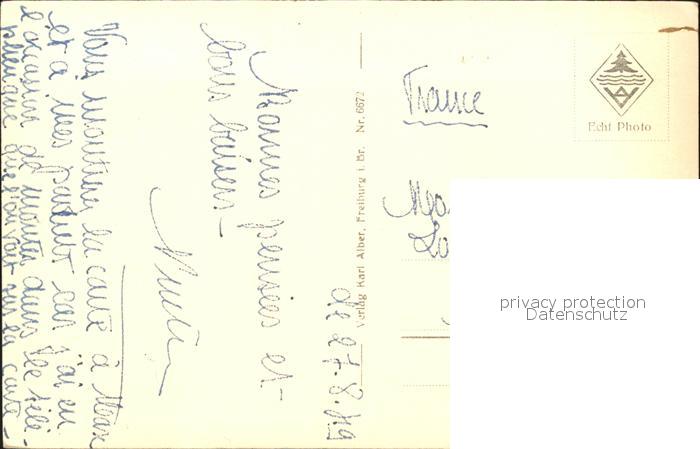 le 27.8.49
Bonnes pensées et
bons baisers-
Vous montrez la carte à Max
et à mes parents car j'ai eu
l'occasion de monter dans le télé-
phérique que l'on voit sur la carte-
Verlag Karl Alber, Freiburg i. Br. Nr. 6672
France
Echt Photo
privacy protection
Datenschutz